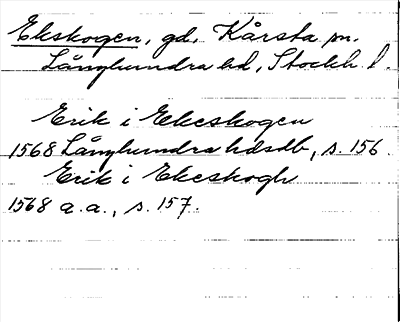 Ekskogen, gd, Kårsta sn.
Långhundra hd, Stockh. l.
Erik i Ekeskogen
1568 Långhundra hdsdb, s. 156.
Erik i Ekeskogh
1568 a.a., s. 157.